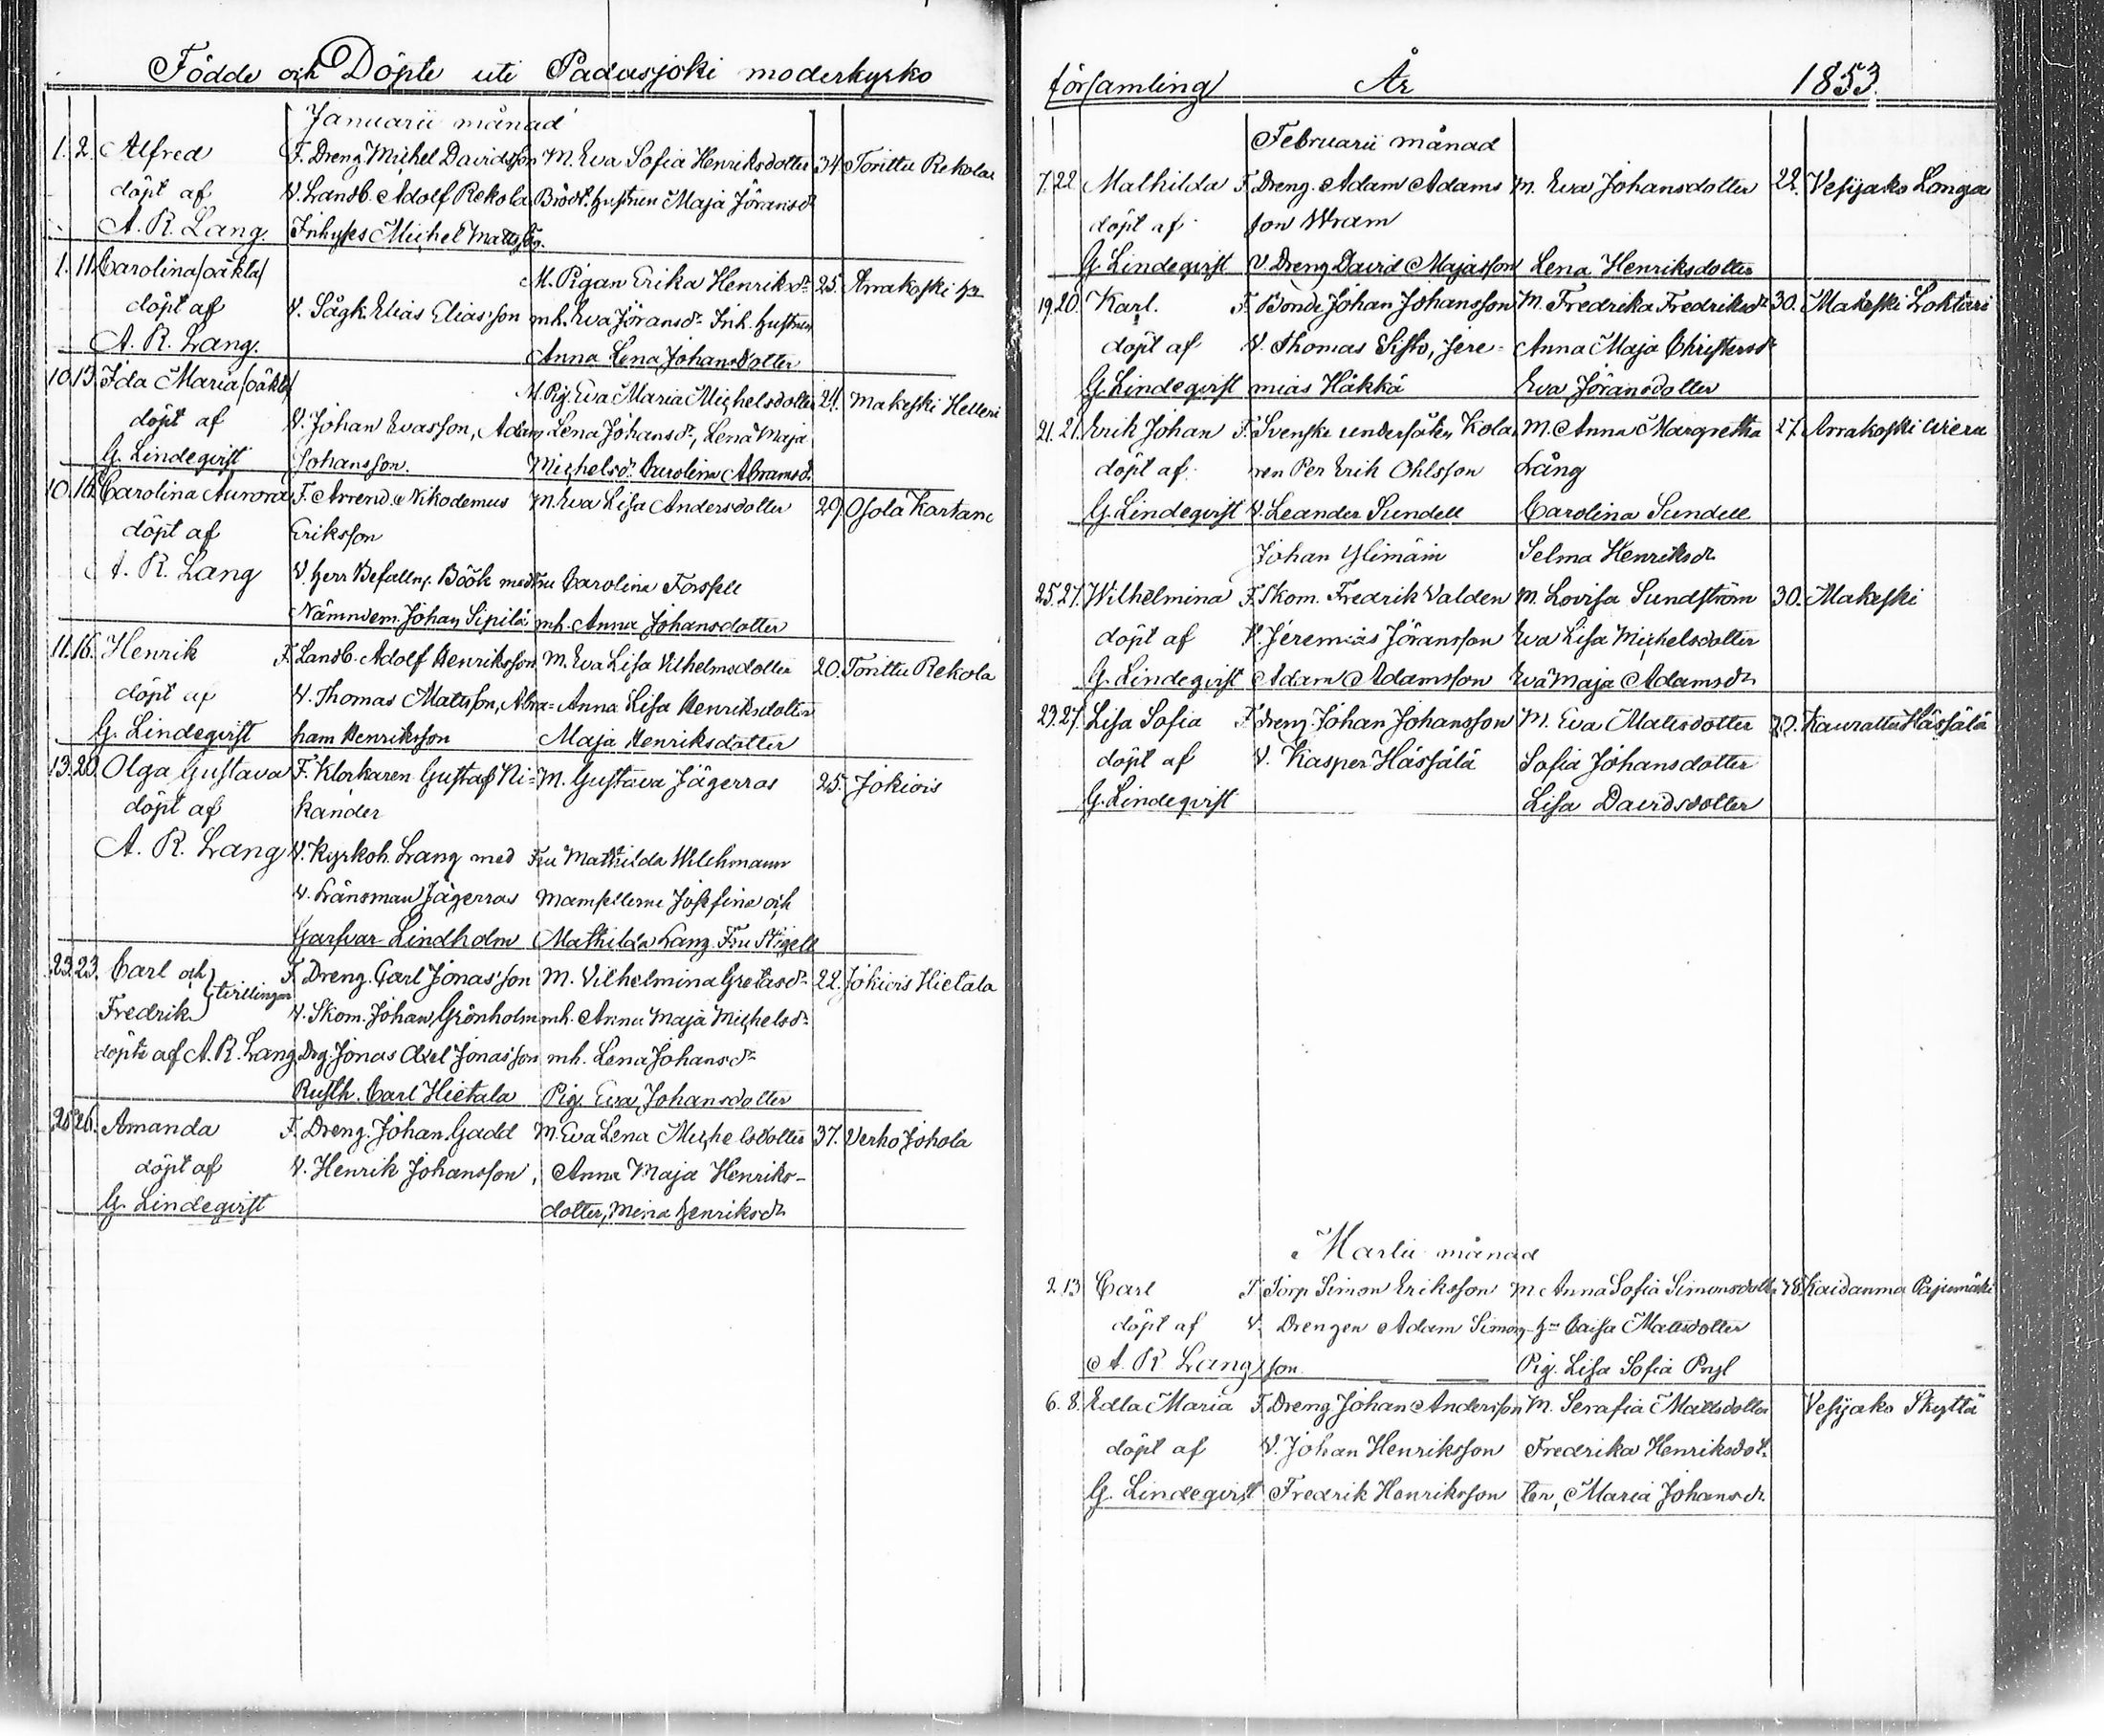 Födde och Döpte uti Padasjoki moderkyrko
Januarii månad
1. 2. Alfred F. Dreng Michel Davidsson M. Eva Sofia Henriksdotter 34 Torittu Rekola
döpt af V. Landb. Adolf Rekola Brodr. hustrun Maja Göransdr
A. R. Lang. Inhyses Michel Mattsson
1. 11. Carolina /oäkta/ M. Pigan Erika Henriksdr 25. Arrakoski
döpt af V. Sågk. Elias Eliasson mh. Eva Göransdr Inh. hustrun
A. R. Lang. Anna Lena Johansdotter
10. 13. Ida Maria /oäkta/ M. Pig. Eva Maria Michelsdotter 24. Makeski Helleri
döpt af V. Johan Evasson, Adam Lena Johansdr, Lena Maja
G. Lindeqvist Johansson. Michelsdr Carolina Abramsdr
10. 16. Carolina Aurora F. Arrend. Nikodemus M. Eva Lisa Andersdotter 29. Osola Kartano
döpt af Eriksson
A. R. Lang V. Herr Befalln. Böök med Fru Carolina Forssell
Nämndem. Johan Sipilä mh. Anna Johansdotter
11. 16. Henrik F. Landb. Adolf Henriksson M. Eva Lisa Vilhelmsdotter 20. Torittu Rekola
döpt af V. Thomas Matsson, Abra- Anna Lisa Henriksdotter
G. Lindeqvist ham Henriksson Maja Henriksdotter
13. 20. Olga Gustava F. Klockaren Gustaf Ni- M. Gustava Jägerroos 25. Jokiois
döpt af kander
A. R. Lang V. Kyrkoh. Lang med Fru Mathilda Wilchmann
V. Länsman Jägerroos Mamsellerne Josefina och
Garfvar Lindholm Mathilda Lang. Fru Stigell
23. 23. Carl och F. Dreng. Carl Jonasson M. Vilhelmina Gretasdr 22. Jokiois Hietala
Fredrik tvillingar V. Skom. Johan Grönholm mh. Anna Maja Michelsdr
döpte af A. R. Lang Drg. Jonas Axel Jonasson mh. Lena Johansdr
Rusth. Carl Hietala Pig. Eva Johansdotter
25. 26. Amanda F. Dreng. Johan Gadd M. Eva Lena Michelsdotter 37. Verho Johola
döpt af V. Henrik Johansson, Anna Maja Henriks-
G. Lindeqvist dotter, Mina Henriksdr
församling År 1853.
Februarii månad
7. 22 Mathilda F. Dreng. Adam Adams M. Eva Johansdotter 22. Vesijako Longa
döpt af son Wram
G. Lindeqvist V. Dreng David Majasson Lena Henriksdotter
19. 20. Karl. F. Bonde Johan Johansson M. Fredrika Fredriksdr 30. Makeski Lokturi
döpt af V. Thomas Sisto, Jere- Anna Maja Christersdr
G. Lindeqvist mias Häkkä Eva Göransdotter
21. 21. Erik Johan F. Svenske undersåten Kola M. Anna Margretha 27. Arrakoski Wiera
döpt af ren Per Erik Ohlsson Lång
G. Lindeqvist V. Leander Sundell Carolina Sundell
Johan Ylimäin Selma Henriksdr
25. 27. Wilhelmina F. Skom. Fredrik Valden M. Lovisa Sundström 30. Makeski
döpt af V. Jeremias Göransson Eva Lisa Michelsdotter
G. Lindeqvist Adam Adamsson Eva Maja Adamsdr
23. 27. Lisa Sofia F. dreng. Johan Johansson M. Eva Mattsdotter Kaurattu Hässälä
döpt af V. Kasper Hässälä Sofia Johansdotter
G. Lindeqvist Lisa Davidsdotter
Martii månad
2 13 Carl F. Torp Simon Eriksson M Anna Sofia Simonsdottr Kaidanma Pajumäki
döpt af V. Drengen Adam Simons- Caisa Mattsdotter
A. R. Lang son. Pig. Lisa Sofia Pryl
6. 8. Edla Maria F. Dreng Johan Andersson M. Serafia Mattsdotter Vesijako Skyttä
döpt af V. Johan Henriksson Fredrika Henriksdot-
G. Lindeqvist Fredrik Henriksson ter, Maria Johansdr.